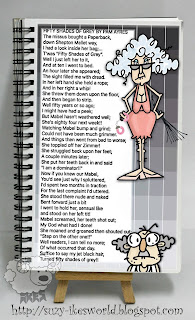 FIFTY SHADES OF GREY BY PAM AYRES
The missus bought a Paperback,
down Shepton Mallet way,
I had a look inside her bag;...
T'was "Fifty Shades of Grey".
Well I just left her to it,
And at ten I went to bed.
An hour later she appeared;
The sight filled me with dread...
In her left hand she held a rope;
And in her right a whip!
She threw them down upon the floor,
And then began to strip.
Well fifty years or so ago;
I might have had a peek;
But Mabel hasn't weathered well;
She's eighty four next week!!
Watching Mabel bump and grind;
Could not have been much grimmer.
And things then went from bad to worse;
She toppled off her Zimmer!
She struggled back upon her feet;
A couple minutes later;
She put her teeth back in and said
"I am a dominater!!"
Now if you knew our Mabel,
You'd see just why I spluttered,
I'd spent two months in traction
For the last complaint I'd uttered.
She stood there nude and naked
Bent forward just a bit
I went to hold her, sensual like
and stood on her left tit!
Mabel screamed, her teeth shot out;
My God what had I done!?
She moaned and groaned then shouted out:
"Step on the other one!!"
Well readers, I can tell no more;
Of what occurred that day.
Suffice to say my jet black hair,
Turned fifty shades of grey!
http://suzy-ikesworld.blogspot.com